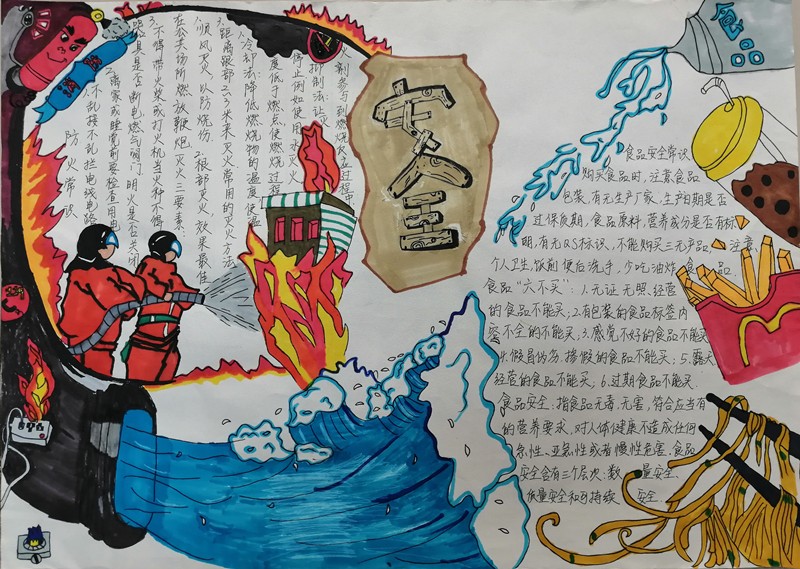 安全
防火常识
1.不乱接不乱拦电线电路
2.离家或睡觉前要检查用电
器具是否断电燃气阀门,明火是否关闭
3.不得带火柴或打火机当火种不得
在公共场所燃放鞭炮 灭火三要素:
1.顺风灭火,以防烧伤 2.根部灭火,效果最佳
3.距离跟部2~3米 灭火 常用的灭火方法
1.冷却法:降低燃烧物的温度使温
度低于燃点,使燃烧过程
停止例如使用水灭火
抑制法:让灭
火剂参与到燃烧反应过程中
食品安全常识
购买食品时,注意食品
包装,有无生产厂家,生产日期是否
过保质期,食品原料,营养成份是否有标
明,有无QS标识,不能购买三无产品,注意
个人卫生,饭前便后洗手,少吃油炸食品
食品"六不买":1.无证无照经营
的食品不能买;2.有包装的食品标签内
容不全的不能买;3.感觉不好的食品不能买
4.假冒伪劣,掺假的食品不能买;5.露天
经营的食品不能买;6.过期食品不能买.
食品安全:指食品无毒、无害,符合应当有
的营养要求,对人体健康不造成任何
急性、亚急性或者慢性危害.食品
安全含有三个层次:数量安全、
质量安全和可持续安全